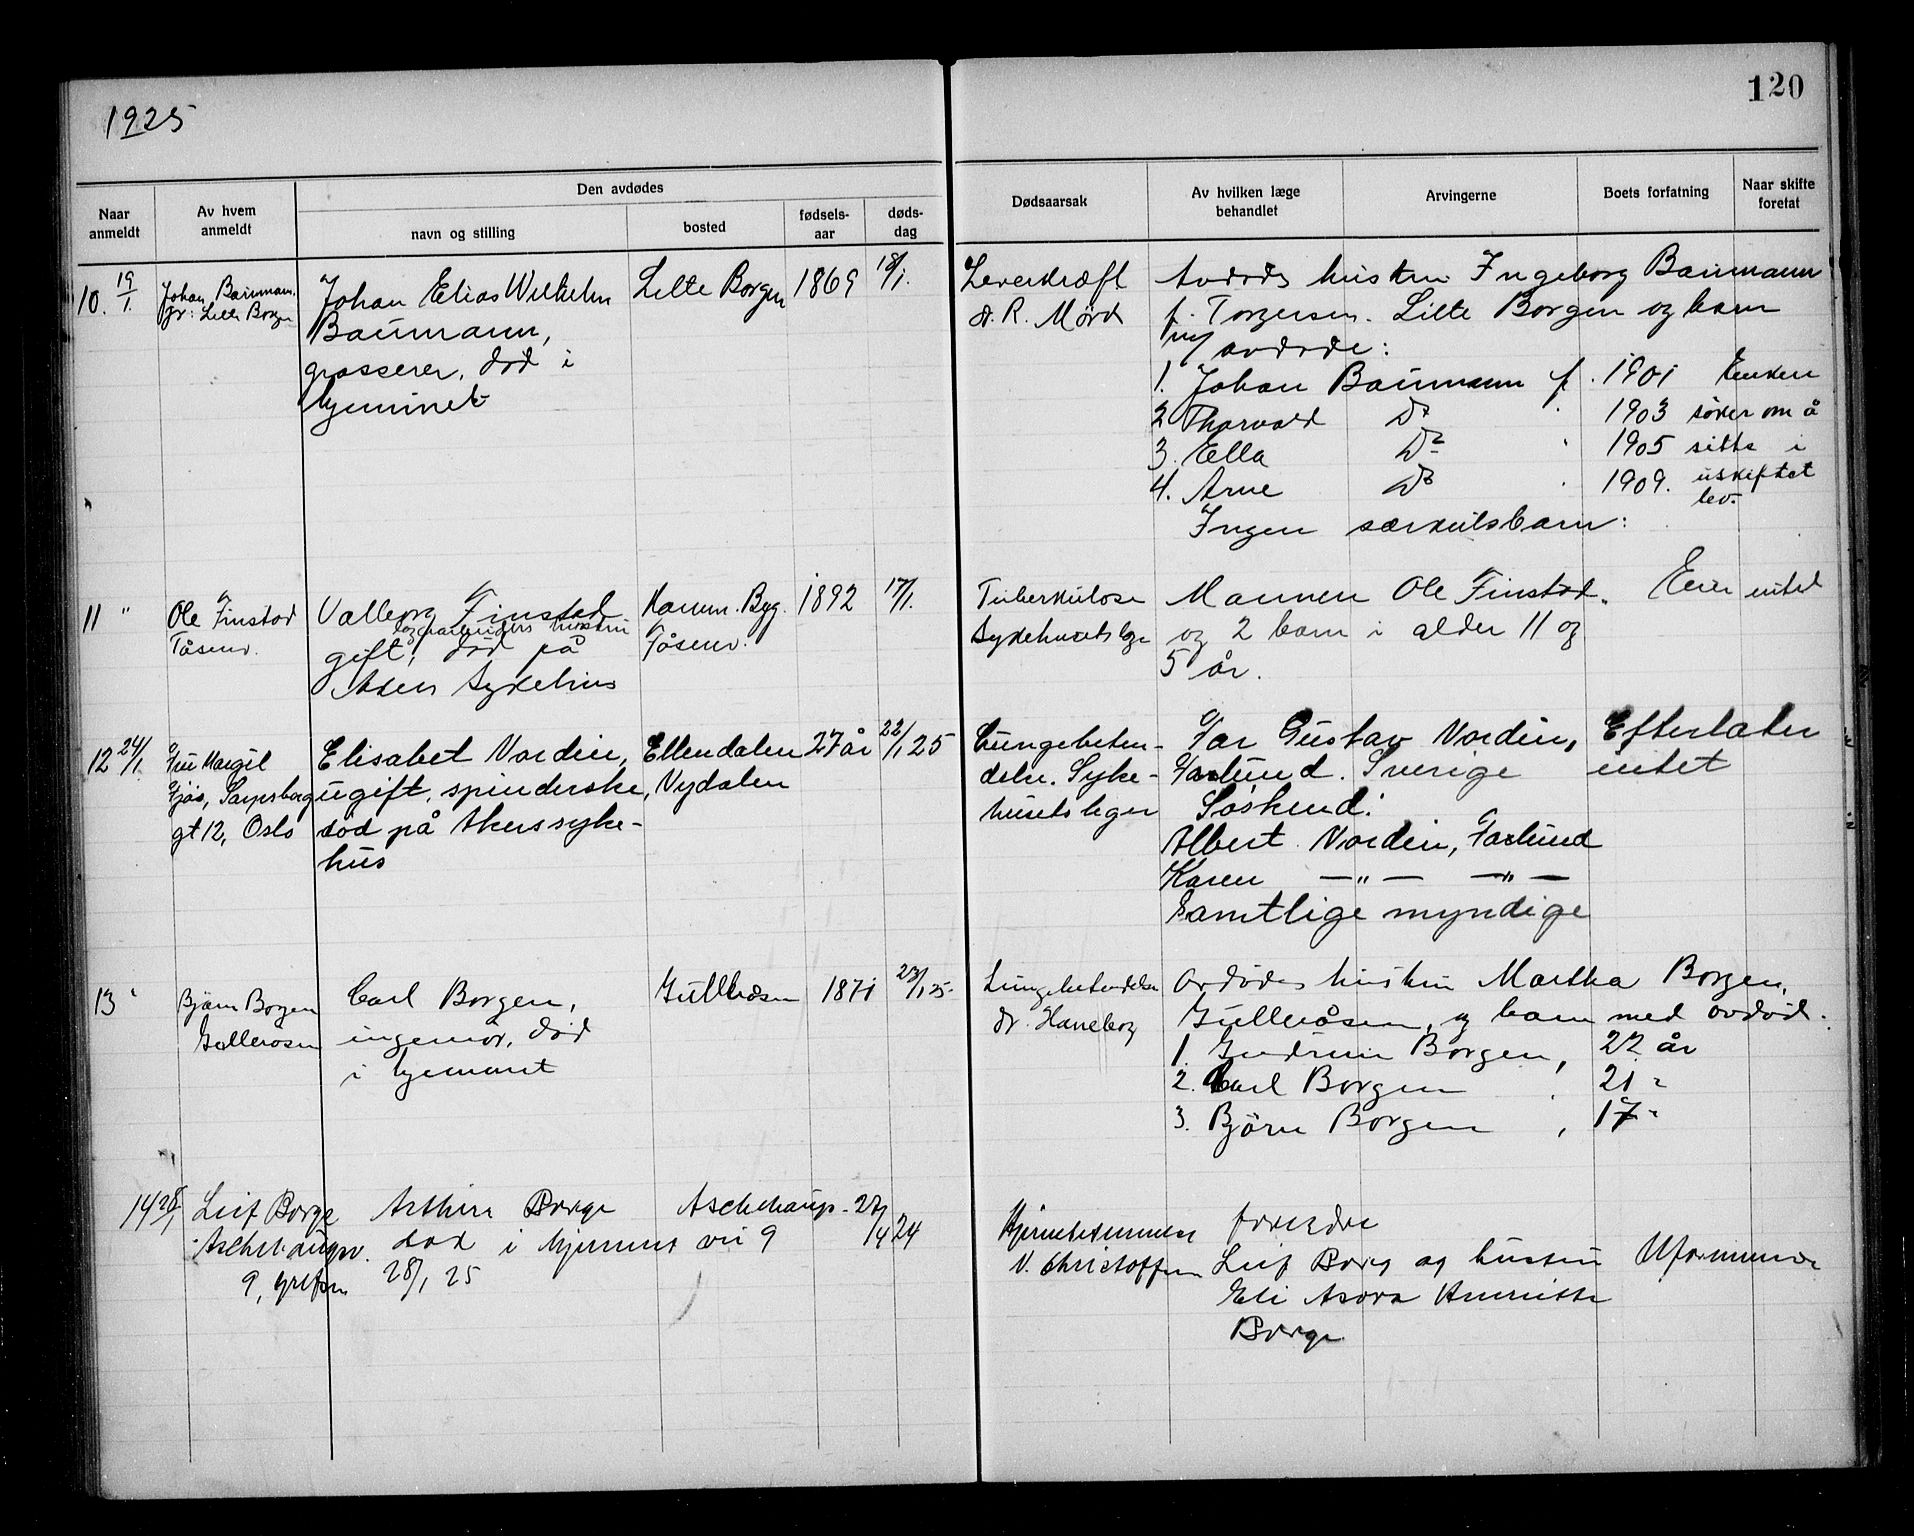 1925
120
Den avdødes
Naar anmeldt
Av hvem anmeldt
navn og stilling
bosted
fødsels-aar
døds-dag
Dødsaarsak
Av hvilken læge behandlet
Arvingerne
Boets forfatning
Naar skifte foretat
10. 19/1. Johan Baumann Lilleborgen
jr: Lille Borgen
Johan Elias Wilhelm
Baumann,
grosserer, død i
hjemmet
Lille Borgen 1869 18/1.
Leverkræft
dr. R. Mörd
Avdødes hustru Ingeborg Baumann
f. Torgersen. Lille Borgen og barn
m/ avdøde:
1. Johan Baumann f. 1901 Enken
2 Thorvald Do 1903 søker om å
3. Ella Do 1905 sitte i
4. Arne Do 1909. uskiftet
bo.
Ingen særkulsbarn:
11 " Ole Finstad
Tåsenv.
Valborg Finstad
hustru
gift, død på
Akers Sykehus
Komm. Byg.
Tåsenv.
1892 17/1.
Tuberkulose
Sykehusetslege
Mannen Ole Finstad. Eier intet
og 2 barn i alder 11 og
5 år.
12 24/1 Fru Margit
Gjøs, Sarpsborg
gt 12, Oslo
Elisabet Nordin,
ugift, spinderske,
död på Akers syke-
hus
Ellendalen
Nydalen
27 år 22/1 25
Lungebeten-
delse. Syke-
husets leger
Far Gustav Nordin, Efterlater
Farlund. Sverige intet
Söskend:
Albert Nordin, Farlund
Karen — " — — " —
Samtlige myndige
13 " Bjørn Borgen
Gullerosen
Carl Borgen,
ingeniör, död
i hjemmet
Gulleråsen 1871 23/1 25.
Lungebetendelse
dr. Haneborg
avdødes hustru Martha Borgen,
Gulleråsen, og barn med avdöd.
1. Gudrun Borgen, 22 år
2. Carl Borgen , 21 "
3. Björn Borgen , 17 "
14 28/1 Leif Borge
Aschehougv.
9, Grefsen
Arthur Borge
död i hjemmet
28/1 25
Aschehoug-
vei 9
27/4 24
Hjernebetennelse
V. Christoffersen
foreldre
Leif Borge og hustru Uformuende
Eli Asora Henriette
Borge